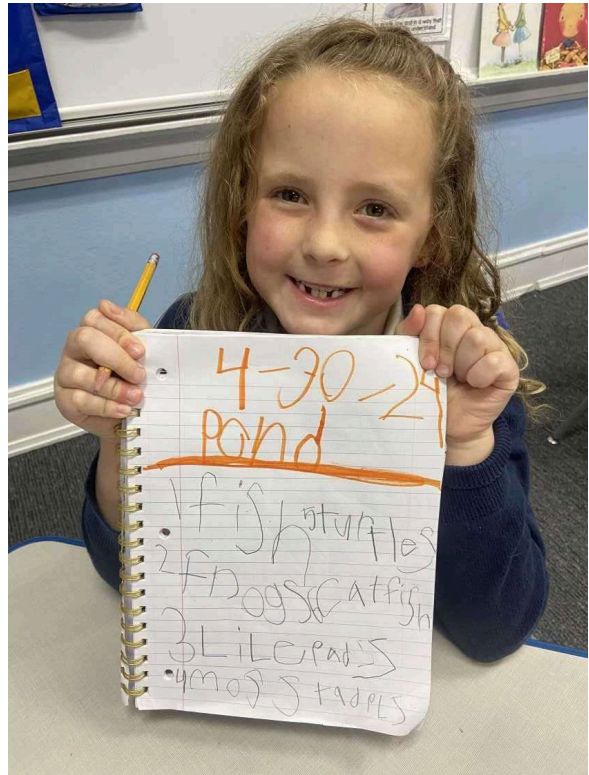 4-30-24
Pond
1 fish 5 turtles
2 Frogs 6 catfish
3 LiLepads
4 moss tadpLs